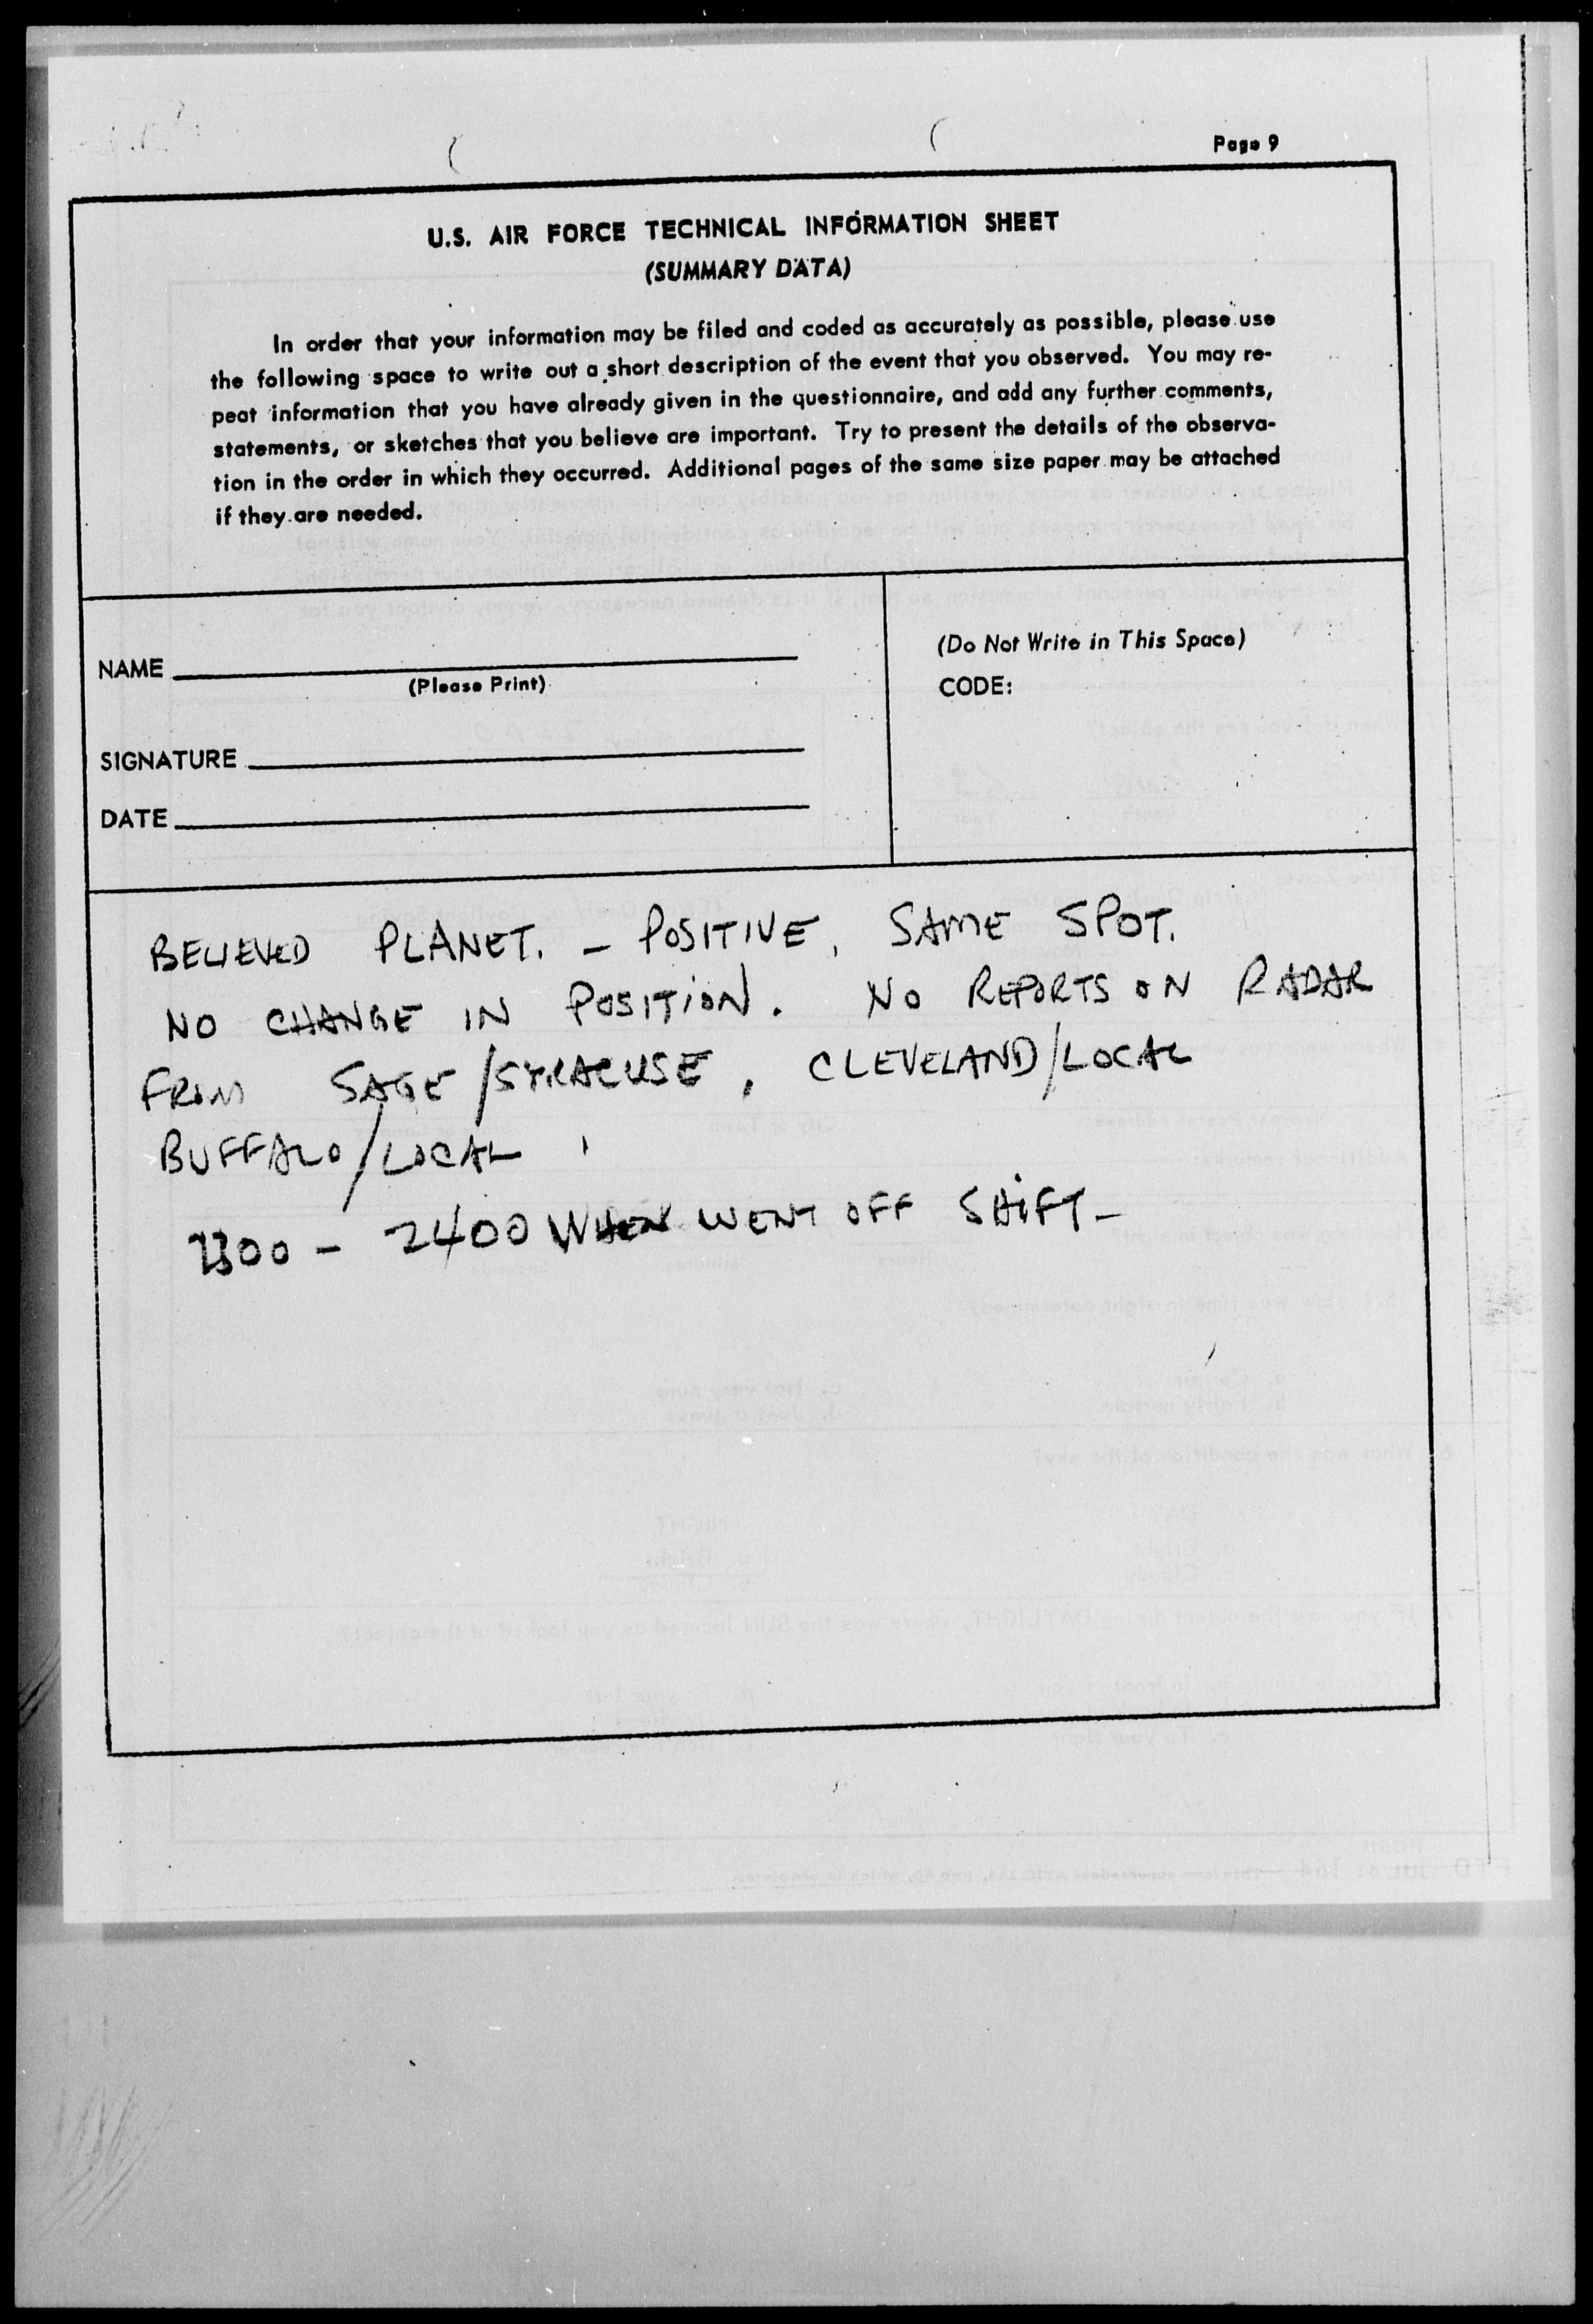 Page 9
U.S. AIR FORCE TECHNICAL INFORMATION SHEET
(SUMMARY DATA)
In order that your information may be filed and coded as accurately as possible, please use
the following space to write out a short description of the event that you observed. You may re-
peat information that you have already given in the questionnaire, and add any further comments,
statements, or sketches that you believe are important. Try to present the details of the observa-
tion in the order in which they occurred. Additional pages of the same size paper may be attached
if they are needed.
NAME
(Please Print)
SIGNATURE
DATE
(Do Not Write in This Space)
CODE:
BELIEVED PLANET. - POSITIVE, SAME SPOT.
NO CHANGE IN POSITION. NO REPORTS ON RADAR
FROM SAGE/SYRACUSE, CLEVELAND/LOCAL
BUFFALO/LOCAL
2300 - 2400 WHEN WENT OFF SHIFT-